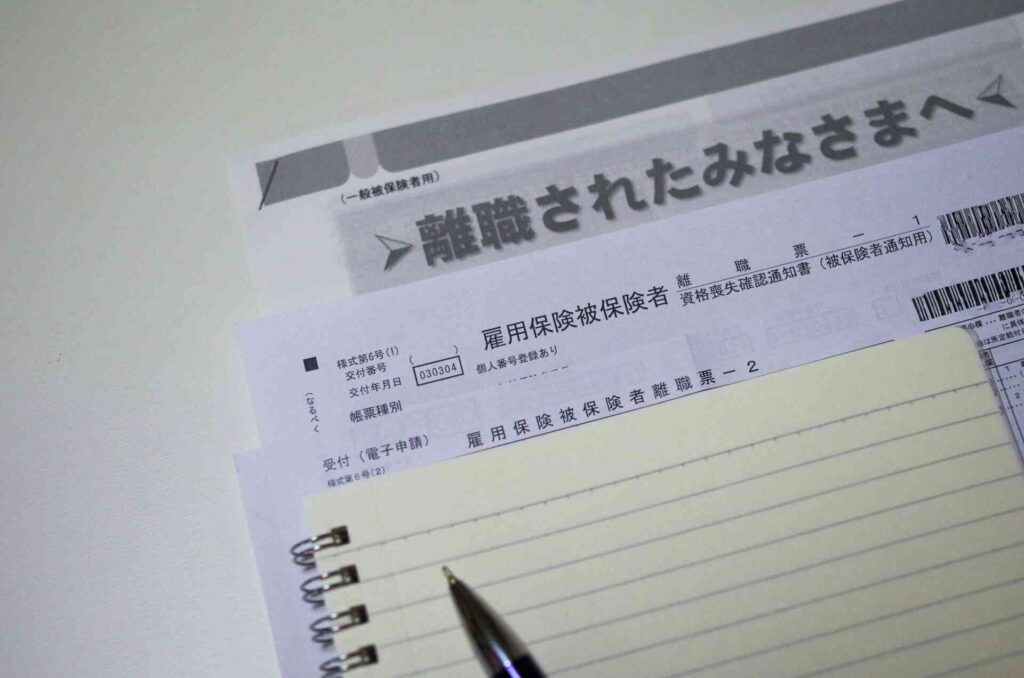 (一般被保険者用)
離職されたみなさまへ
離職票－1
雇用保険被保険者
資格喪失確認通知書(被保険者通知用)
様式第6号(1)
交付番号
( )
個人番号登録あり
交付年月日
030304
帳票種別
(なるべく
受付(電子申請)
雇用保険被保険者離職票－2
様式第6号(2)